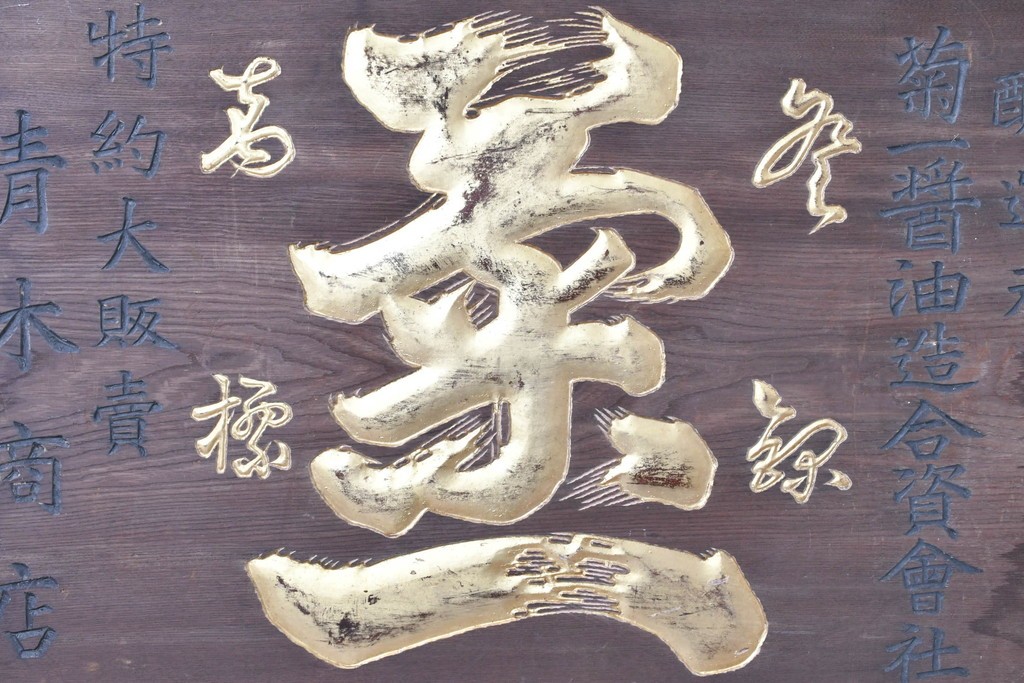 醸造元
菊一醤油造合資會社
登録
菊一
商標
特約大販賣
青木商店